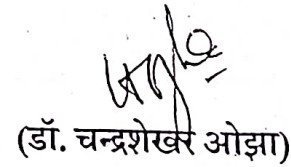 (डॉ. चन्द्रशेखर ओझा)